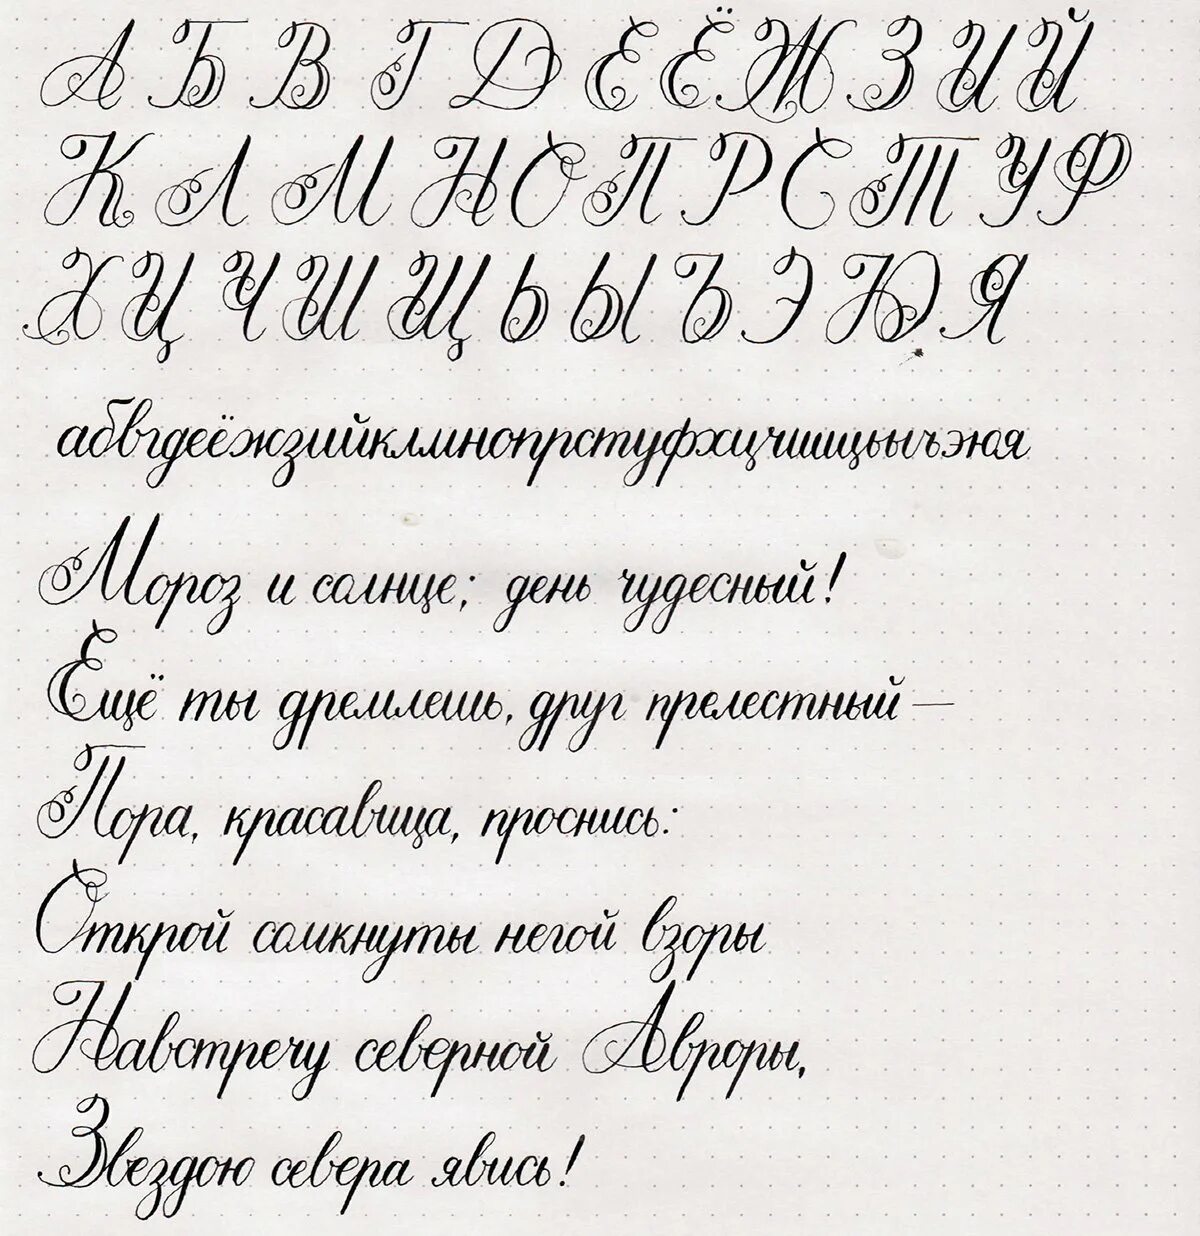 А Б В Г Д Е Ё Ж З И Й
К Л М Н О П Р С Т У Ф
Х Ц Ч Ш Щ Ь Ы Ъ Э Ю Я
абвгдеёжзийклмнопрстуфхцчшщьыъэюя
Мороз и солнце; день чудесный!
Ещё ты дремлешь, друг прелестный —
Пора, красавица, проснись:
Открой сомкнуты негой взоры
Навстречу северной Авроры,
Звездою севера явись!